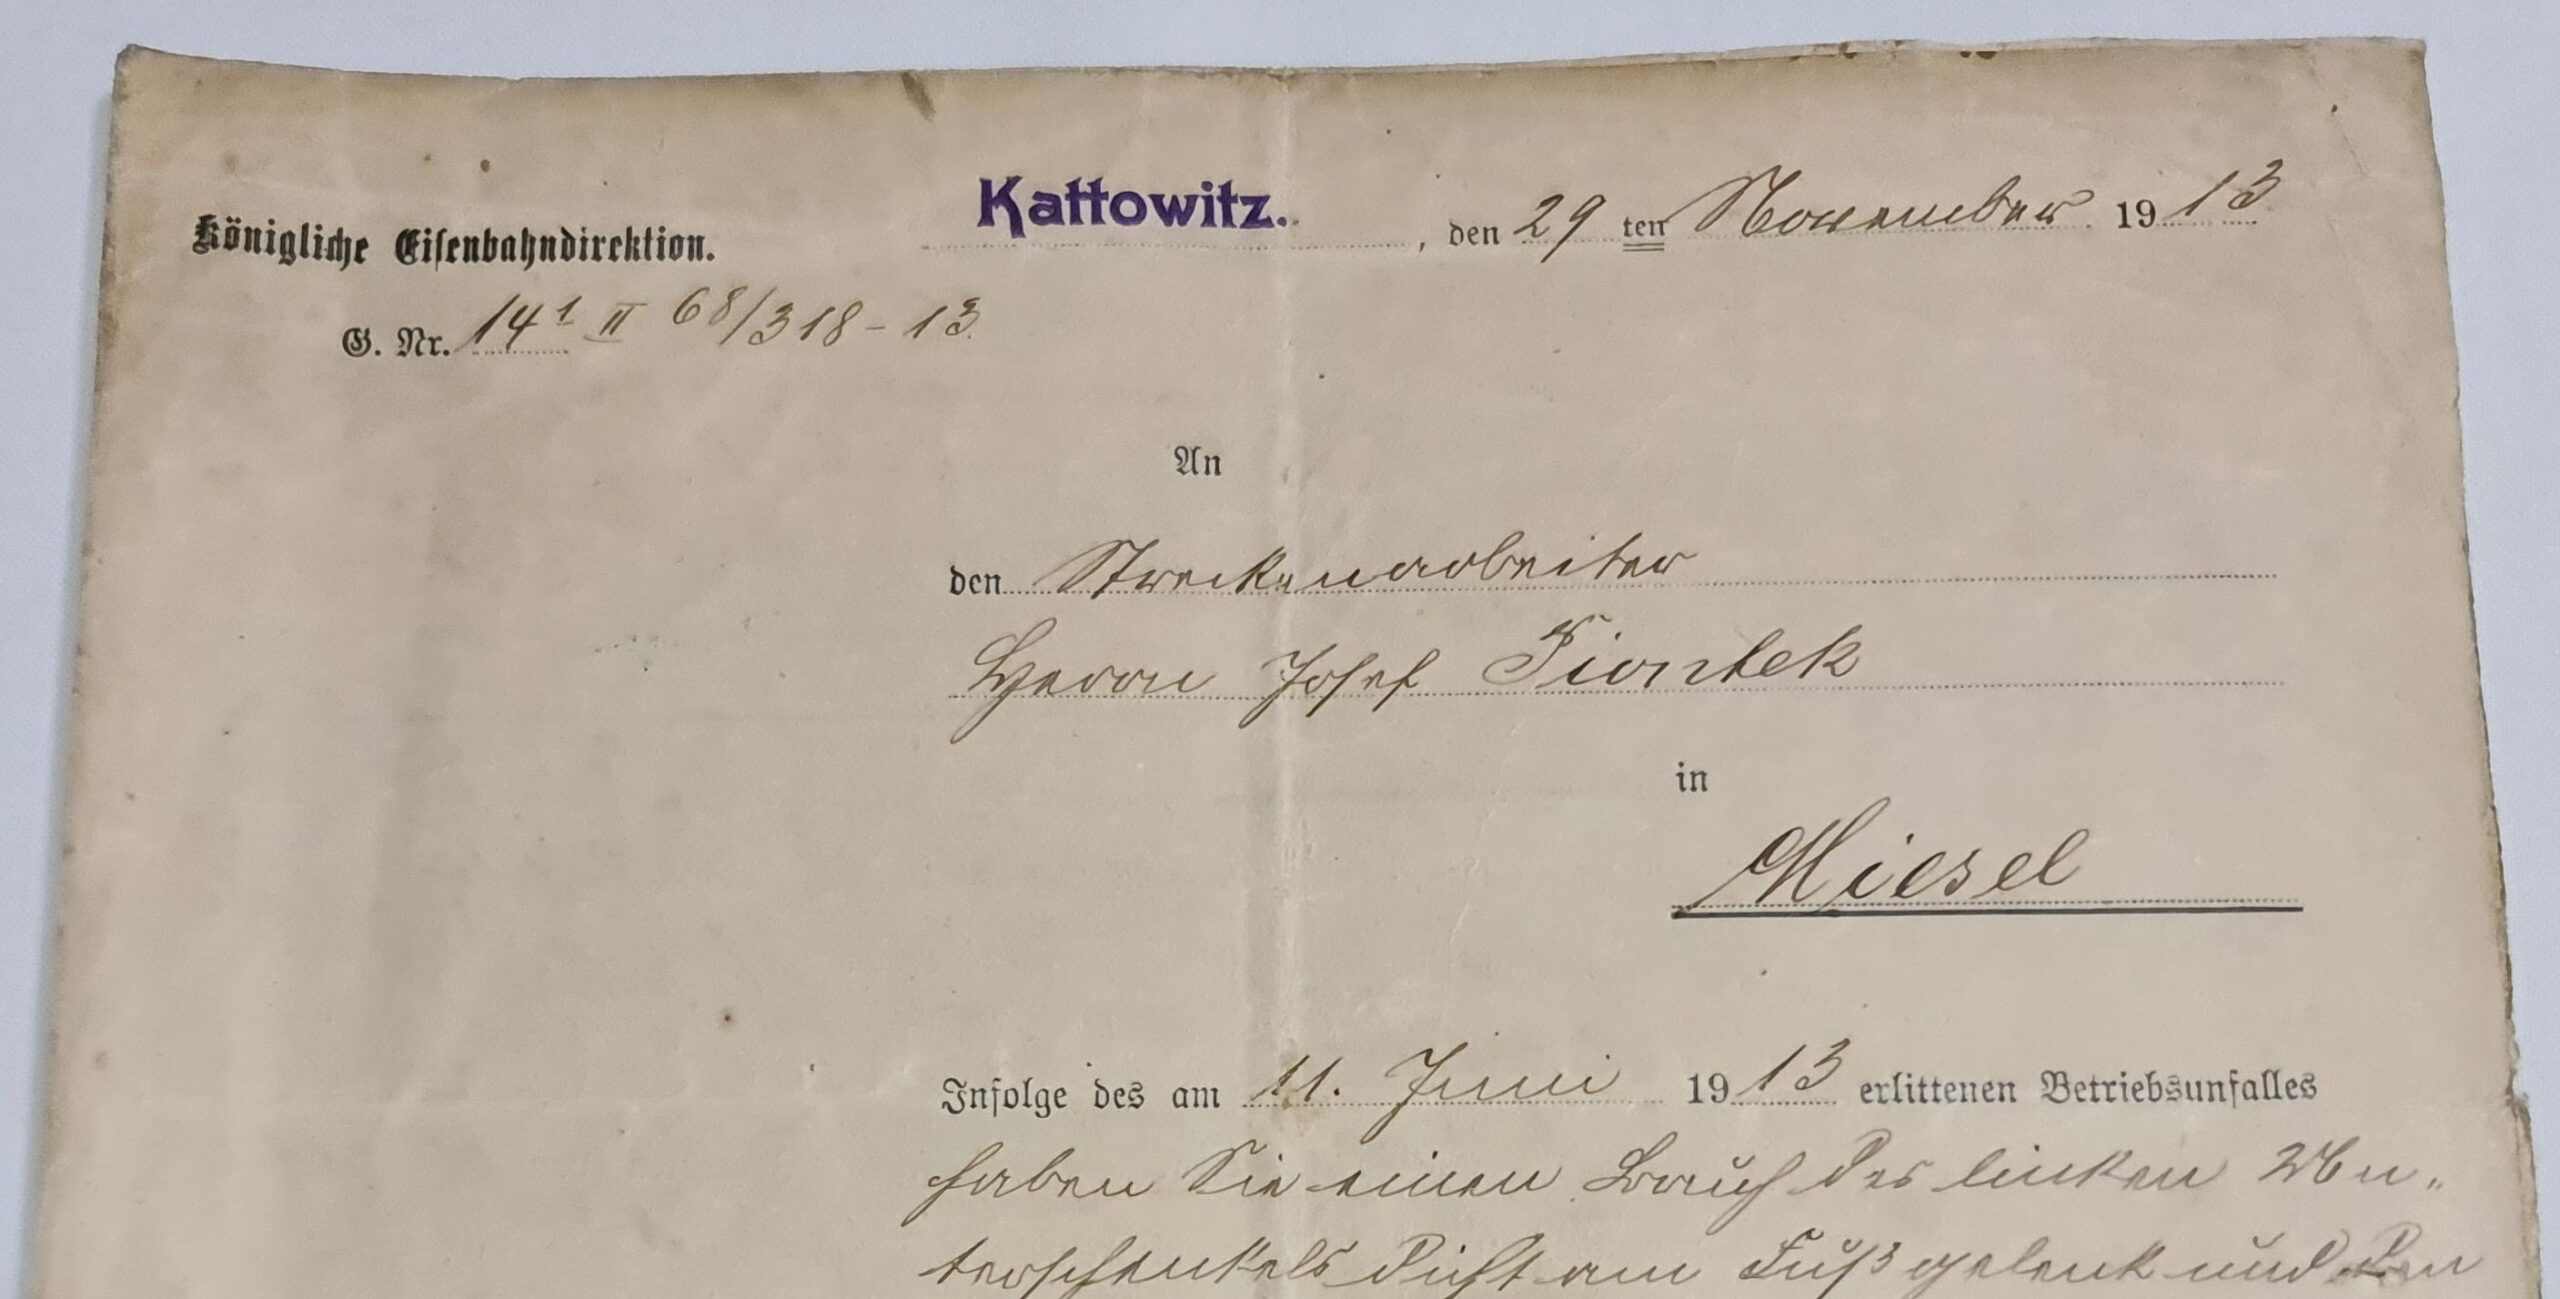 Kattowitz. , den 29 ten November 1913
Königliche Eisenbahndirektion.
G. Nr. 14¹ II 68/318-13.
An
den Streckenarbeiter
Herrn Josef Piontek
in
Miesel
Infolge des am 11. Juni 1913 erlittenen Betriebsunfalles
haben Sie einen Bruch des linken Un-
terschenkels dicht am Fußgelenk und den